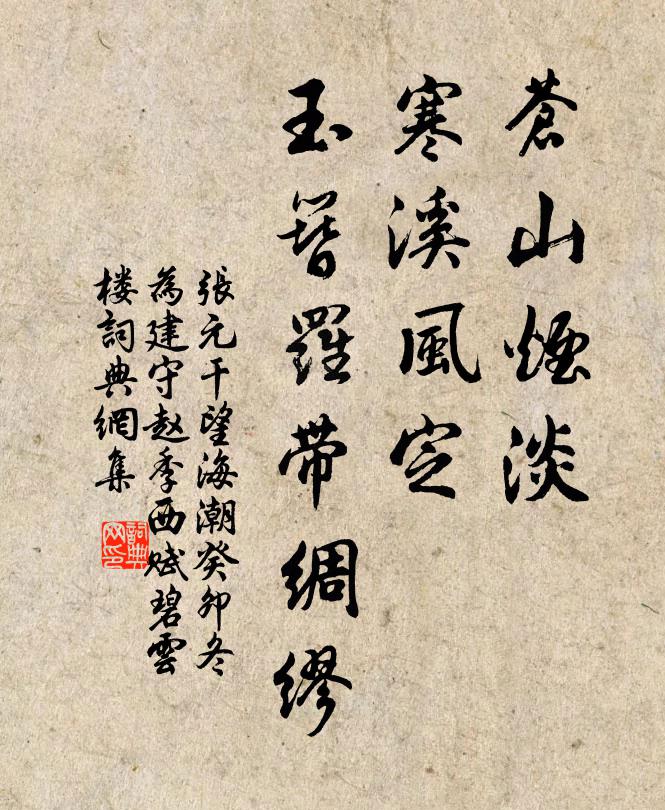 蒼山煙淡
寒溪風定
玉簪羅帶綢繆
張元干望海潮癸卯冬
為建守赵季西賦碧雲
楼詞典網集
詞典网印